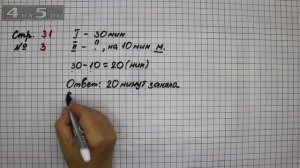 4 по 5.ru
Стр. 31 I - 30 мин
№ 3 II - ?, на 10 мин м.
30-10=20 (мин)
Ответ: 20 минут заняла